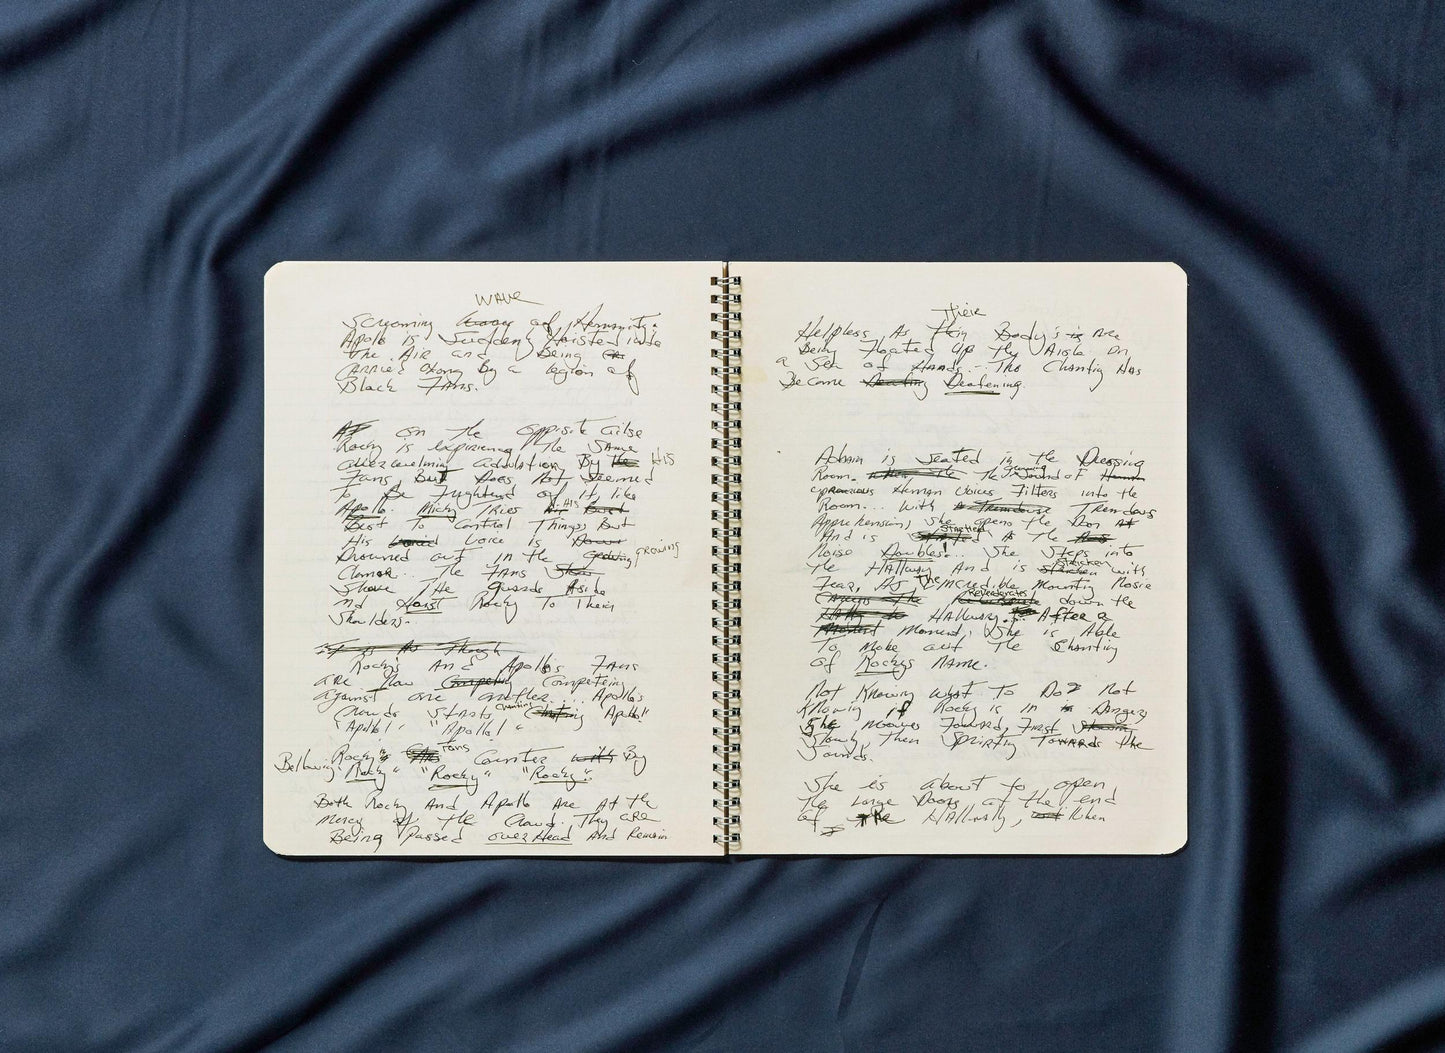 WAVE
Screaming of Humanity.
Apollo is Suddenly Hoisted into
The Air and Being
CARRied Along By a legion of
Black Fans.
on the opposite Aisle
Rocky is Experiencing the SAME
overwhelming adulation By the HIS
Fans But Does Not Seemed
To Be Frightend of it, like
Apollo. Micky Tries HIS
Best To Control Things But
His Voice is
Drowned out in the growing GROWING
Clamor... The FANS
Shove THe guards Aside
nd Hoist Rocky To Their
Shoulders..
It is As Though
Rocky's And Apollo's FANS
are Now Competeing
against one another... Apollo's
Crowds Starts Chanting Apollo"
"Apollo! "Apollo! "
Rocky's Fans Counter with By
Bellowing "Rocky" "Rocky" "Rocky"..
Both Rocky And Apollo Are At the
mercy of the Crowd. They are
Being passed overHead And Remain
Their
Helpless As They Body's is Are
Being Floated Up the Aisle on
a Sea of HANDS.. The Chanting Has
Become Deafening.
Adrain is Seated in the Dressing
Room. when the The Sound of Human
Human Voices Filters into the
Room... With Tremendous
Apprehension, She opens the Door
And is Startled As the
Noise Doubles!... She Steps into
the HAllway And is Stricken with
Fear, As The incredible mounting Nosie
Across the Reverberates down the
HAllway... After a
Moment Moment, She is Able
To Make out the Chanting
of Rockys NAME.
Not Knowing What To Do? Not
Knowing if Rocky is in Danger,
She moves Forward, First
Slowly, Then Sprinting TowARds the
Sounds.
She is about to open
the Large Doors at the end
of the Hallway, When